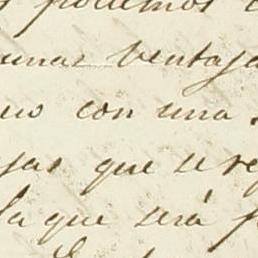 podemos
unas ventaja
uo con una
jas que se re
la que será f